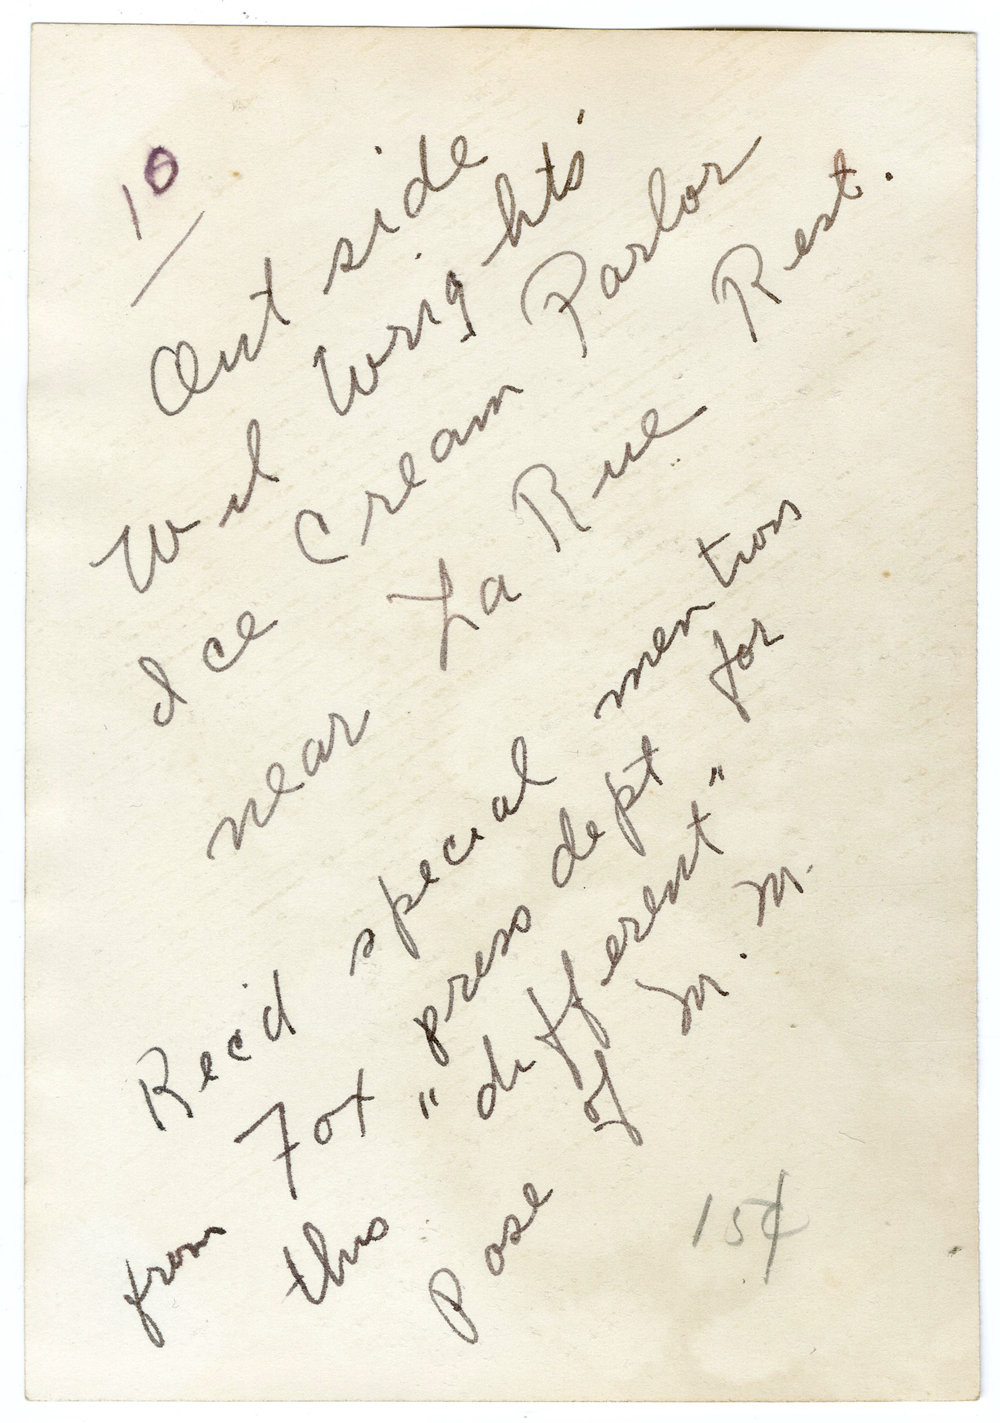 10
Out side
Wil Wrights'
Ice Cream Parlor
near La Rue Rest.
Recd special mention
from Fox press dept for
this "different"
pose of M. M.
15¢